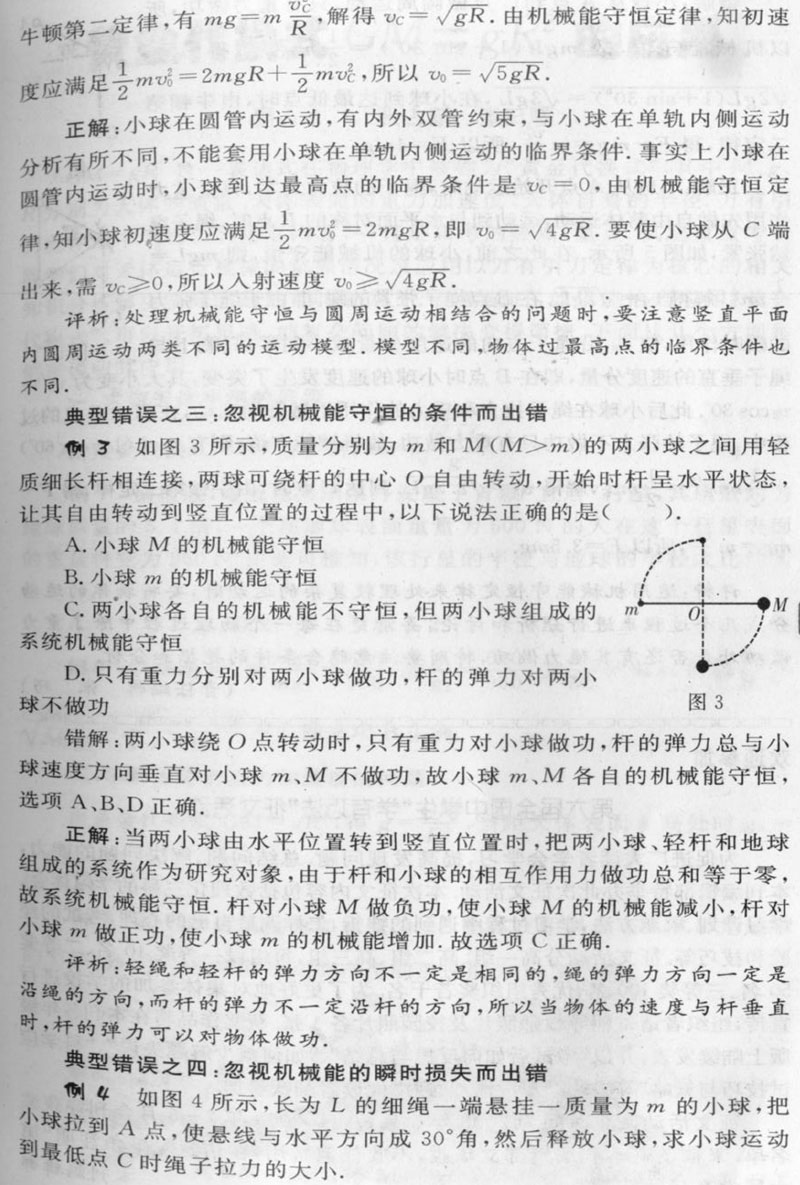 牛顿第二定律,有 mg=m v_C²/R,解得 v_C=√gR.由机械能守恒定律,知初速
度应满足 1/2 mv₀²=2mgR+1/2 mv_C²,所以 v₀=√5gR.
正解:小球在圆管内运动,有内外双管约束,与小球在单轨内侧运动
分析有所不同,不能套用小球在单轨内侧运动的临界条件.事实上小球在
圆管内运动时,小球到达最高点的临界条件是 v_C=0,由机械能守恒定
律,知小球初速度应满足 1/2 mv₀²=2mgR,即 v₀=√4gR.要使小球从 C 端
出来,需 v_C≥0,所以入射速度 v₀≥√4gR.
评析:处理机械能守恒与圆周运动相结合的问题时,要注意竖直平面
内圆周运动两类不同的运动模型.模型不同,物体过最高点的临界条件也
不同.
典型错误之三:忽视机械能守恒的条件而出错
例 3 如图 3 所示,质量分别为 m 和 M(M>m)的两小球之间用轻
质细长杆相连接,两球可绕杆的中心 O 自由转动,开始时杆呈水平状态,
让其自由转动到竖直位置的过程中,以下说法正确的是( ).
A.小球 M 的机械能守恒
B.小球 m 的机械能守恒
C.两小球各自的机械能不守恒,但两小球组成的
系统机械能守恒
D.只有重力分别对两小球做功,杆的弹力对两小
球不做功
m
O
M
图 3
错解:两小球绕 O 点转动时,只有重力对小球做功,杆的弹力总与小
球速度方向垂直对小球 m、M 不做功,故小球 m、M 各自的机械能守恒,
选项 A、B、D 正确.
正解:当两小球由水平位置转到竖直位置时,把两小球、轻杆和地球
组成的系统作为研究对象,由于杆和小球的相互作用力做功总和等于零,
故系统机械能守恒.杆对小球 M 做负功,使小球 M 的机械能减小,杆对
小球 m 做正功,使小球 m 的机械能增加.故选项 C 正确.
评析:轻绳和轻杆的弹力方向不一定是相同的,绳的弹力方向一定是
沿绳的方向,而杆的弹力不一定沿杆的方向,所以当物体的速度与杆垂直
时,杆的弹力可以对物体做功.
典型错误之四:忽视机械能的瞬时损失而出错
例 4 如图 4 所示,长为 L 的细绳一端悬挂一质量为 m 的小球,把
小球拉到 A 点,使悬线与水平方向成 30°角,然后释放小球,求小球运动
到最低点 C 时绳子拉力的大小.